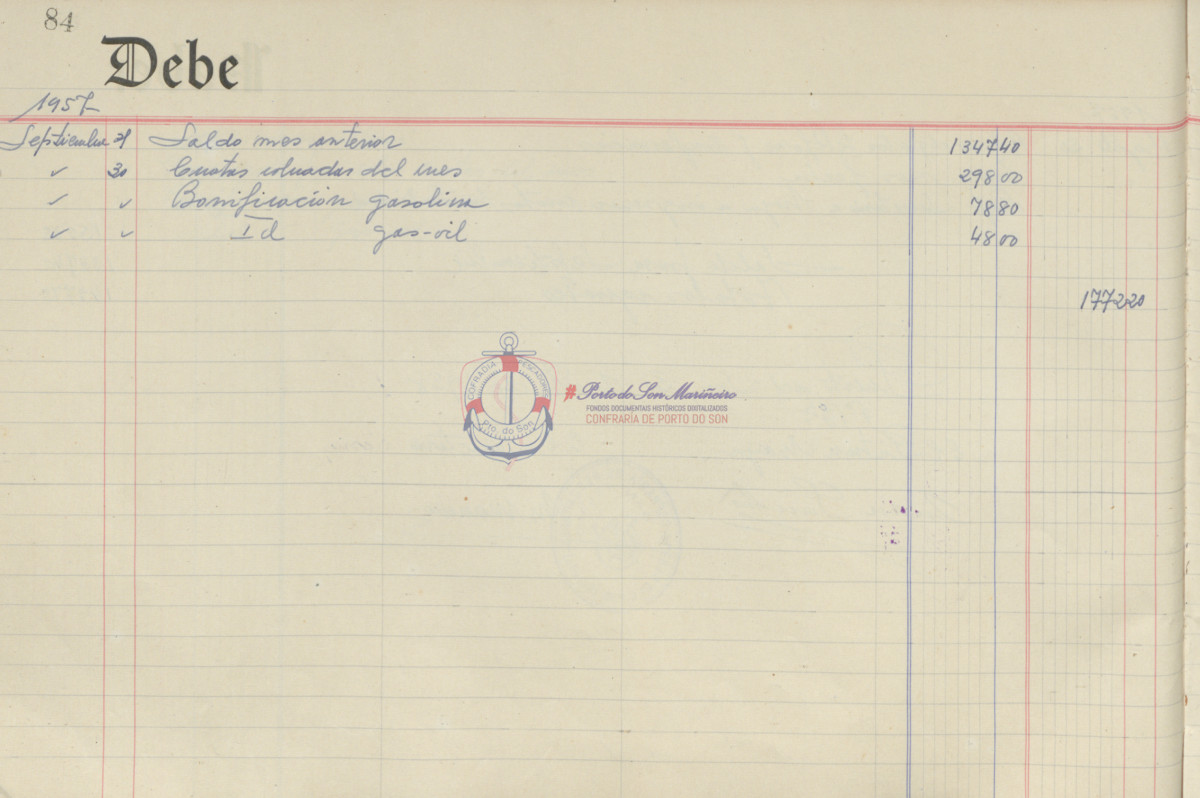 84
Debe
1957
Septiembre 1 Saldo mes anterior 1347 40
✓ 30 Cuotas cobradas del mes 298 00
✓ ✓ Bonificación gasolina 78 80
✓ ✓ Id gas-oil 48 00
1772 20
COFRADIA PESCADORES
Pto. do Son
#Porto do Son Mariñeiro
FONDOS DOCUMENTAIS HISTÓRICOS DIXITALIZADOS
CONFRARÍA DE PORTO DO SON